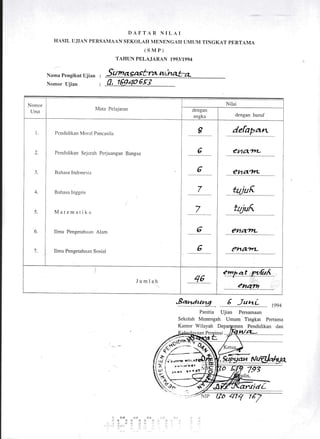 DAFTAR NILAI
HASIL UJIAN PERSAMAAN SEKOLAH MENENGAH UMUM TINGKAT PERTAMA
( SMP )
TAHUN PELAJARAN 1993/1994
Nama Pengikut Ujian :
Nomor Ujian :
Nomor Urut Mata Pelajaran Nilai
dengan angka dengan huruf
1. Pendidikan Moral Pancasila 8 delapan
2. Pendidikan Sejarah Perjuangan Bangsa 6 enam
3. Bahasa Indonesia 6 enam
4. Bahasa Inggris 7 tujuh
5. Matematika 7 tujuh
6. Ilmu Pengetahuan Alam 6 enam
7. Ilmu Pengetahuan Sosial 6 enam
Jumlah 46 empat puluh enam
Bandung 6 Juni 1994
Panitia Ujian Persamaan
Sekolah Menengah Umum Tingkat Pertama
Kantor Wilayah Departemen Pendidikan dan
Kebudayaan Propinsi Jawa
Ketua
NIP